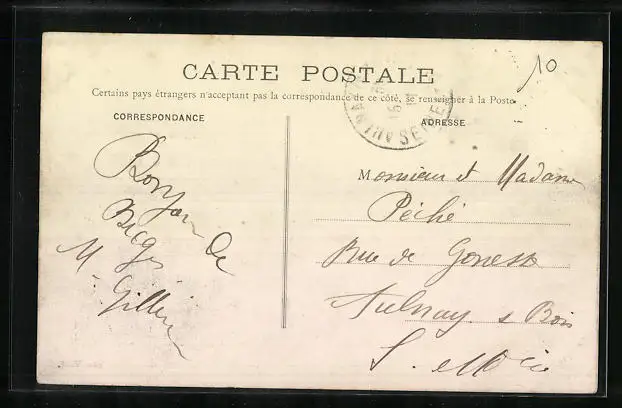 10
CARTE POSTALE
Certains pays étrangers n'acceptant pas la correspondance de ce côté, se renseigner à la Poste
CORRESPONDANCE
ADRESSE
Bonjour de
M
Monsieur et Madame
Péché
Rue de Gonesse
Aulnay s Bois
S. et Oise